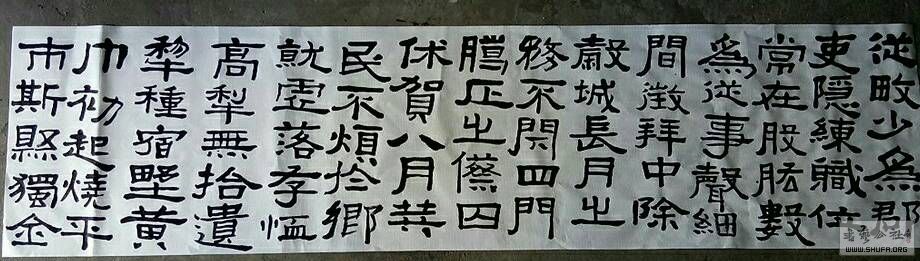 從畋少為郡
吏隱練職位
常在股肱數
為從事聲細
間徵拜中除
穀城長月之
務不閉四門
臈正之僚囚
休賀八月共
民不煩於鄉
就虛落存恤
高犁無拾遺
犂種宿野黃
巾初起燒平
市斯縣獨全
WWW.SHUFA.ORG